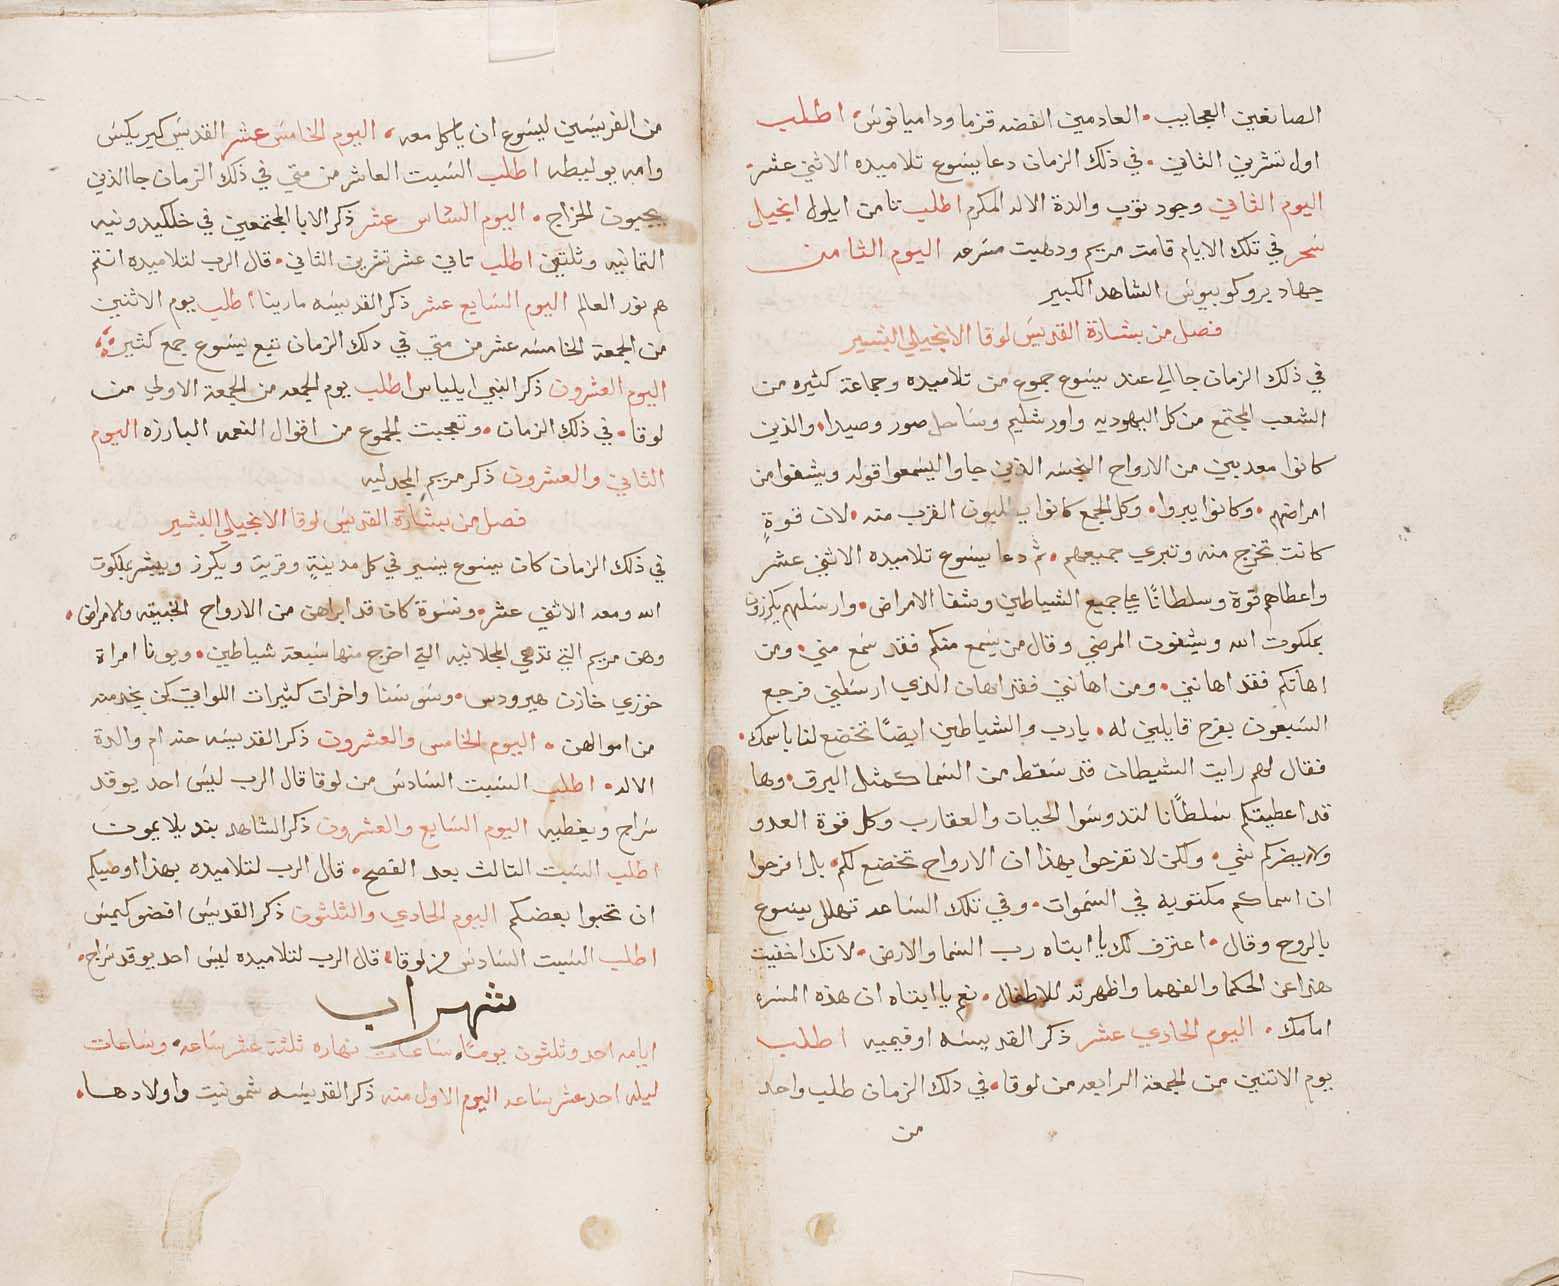 الصانعين العجايب. العادمين الفضه قزما وداميانوس. اطلب
اول تشرين الثاني. في ذلك الزمان دعا يسوع تلاميذه الاثني عشر.
اليوم الثاني وجود ثوب والدة الاله المكرم اطلب ثامن ايلول انجيل
سحر في تلك الايام قامت مريم ومضيت مسرعه اليوم الثامن
جهاد بروكوبيوس الشاهد الكبير
فصل من بشارة القديس لوقا الانجيلي البشير
في ذلك الزمان جا الى عند يسوع جموع من تلاميذه وجماعة كثيره من
الشعب المجتمع من كل اليهوديه واورشليم وساحل صور وصيدا. والذين
كانوا معدبين من الارواح النجسه الذين جاوا ليسمعوا قوله ويشفوا من
امراضهم. وكانوا يبروا. وكل الجمع كانوا يطلبون القرب منه. لان قوةٍ
كانت تخرج منه وتبري جميعهم. ثم دعا يسوع تلاميذه الاثني عشر
واعطاهم قوة وسلطانًا على جميع الشياطين وشفا الامراض. وارسلهم يكرزون
بملكوت الله ويشفون المرضى وقال من يسمع منكم فقد سمع مني. ومن
اهانكم فقد اهانني. ومن اهانني فقد اهان الذي ارسلني فرجع
السبعون بفرح قايلين له. يارب والشياطين ايضًا تخضع لنا باسمك.
فقال لهم رايت الشيطان قد سقط من السما كمثل البرق. وها
قد اعطيتكم سلطانًا لتدوسوا الحيات والعقارب وكل قوة العدو
ولا يضركم شي. ولكن لا تفرحوا بهذا ان الارواح تخضع لكم. بل افرحوا
ان اسماكم مكتوبه في السموات. وفي تلك الساعه تهلل يسوع
بالروح وقال. اعترف لك يا ابتاه رب السما والارض. لانك اخفيت
هذا عن الحكما والفهما واظهرته للاطفال. نعم يا ابتاه ان هذه المسره
امامك. اليوم الحادي عشر ذكر القديسه اوفيميه اطلب
يوم الاثنين من الجمعة الرابعه من لوقا. في ذلك الزمان طلب واحد
من
من الفريسيين ليسوع ان ياكل معه. اليوم الخامس عشر القديس كيريكس
وامه يوليطه اطلب السبت العاشر من متي في ذلك الزمان جا الذين
يجبون الخراج. اليوم السادس عشر ذكر الابا المجتمعين في خلكيدونيه
الثمانيه وثلثين اطلب ثاني عشر تشرين الثاني. قال الرب لتلاميذه انتم
هم نور العالم اليوم السابع عشر ذكر القديسه مارينا اطلب يوم الاثنين
من الجمعة الخامسه عشر من متي في ذلك الزمان تبع يسوع جمع كثير.
اليوم العشرون ذكر النبي ايلياس اطلب يوم الجمعه من الجمعة الاولى من
لوقا. في ذلك الزمان. وتعجبت الجموع من اقوال النعمه البارزه اليوم
الثاني والعشرون ذكر مريم المجدليه
فصل من بشارة القديس لوقا الانجيلي البشير
في ذلك الزمان كان يسوع يسير في كل مدينةٍ وقرية ويكرز ويبشر بملكوت
الله ومعه الاثني عشر. ونسوة كان قد ابراهن من الارواح الخبيثه والامراض.
وهن مريم التي تدعي المجدلانيه التي اخرج منها سبعة شياطين. ويونا امراة
خوزي خازن هيرودس. وسوسنا واخرات كثيرات اللواتي كن يخدمنه
من اموالهن. اليوم الخامس والعشرون ذكر القديسه حنه ام والدة
الاله. اطلب السبت السادس من لوقا قال الرب ليس احد يوقد
سراج ويغطيه اليوم السابع والعشرون ذكر الشاهد بنديلايمون
اطلب السبت الثالث بعد الفصح. قال الرب لتلاميذه بهذا اوصيكم
ان تحبوا بعضكم اليوم الحادي والثلثون ذكر القديس افضوكيمس
اطلب السبت السادس من لوقا. قال الرب لتلاميذه ليس احد يوقد سراج.
شهر اب
ايامه احد وثلثون يومًا. ساعات نهاره ثلثة عشر ساعه. وساعات
ليله احد عشر ساعه اليوم الاول منه ذكر القديسه شمونيت واولادها.